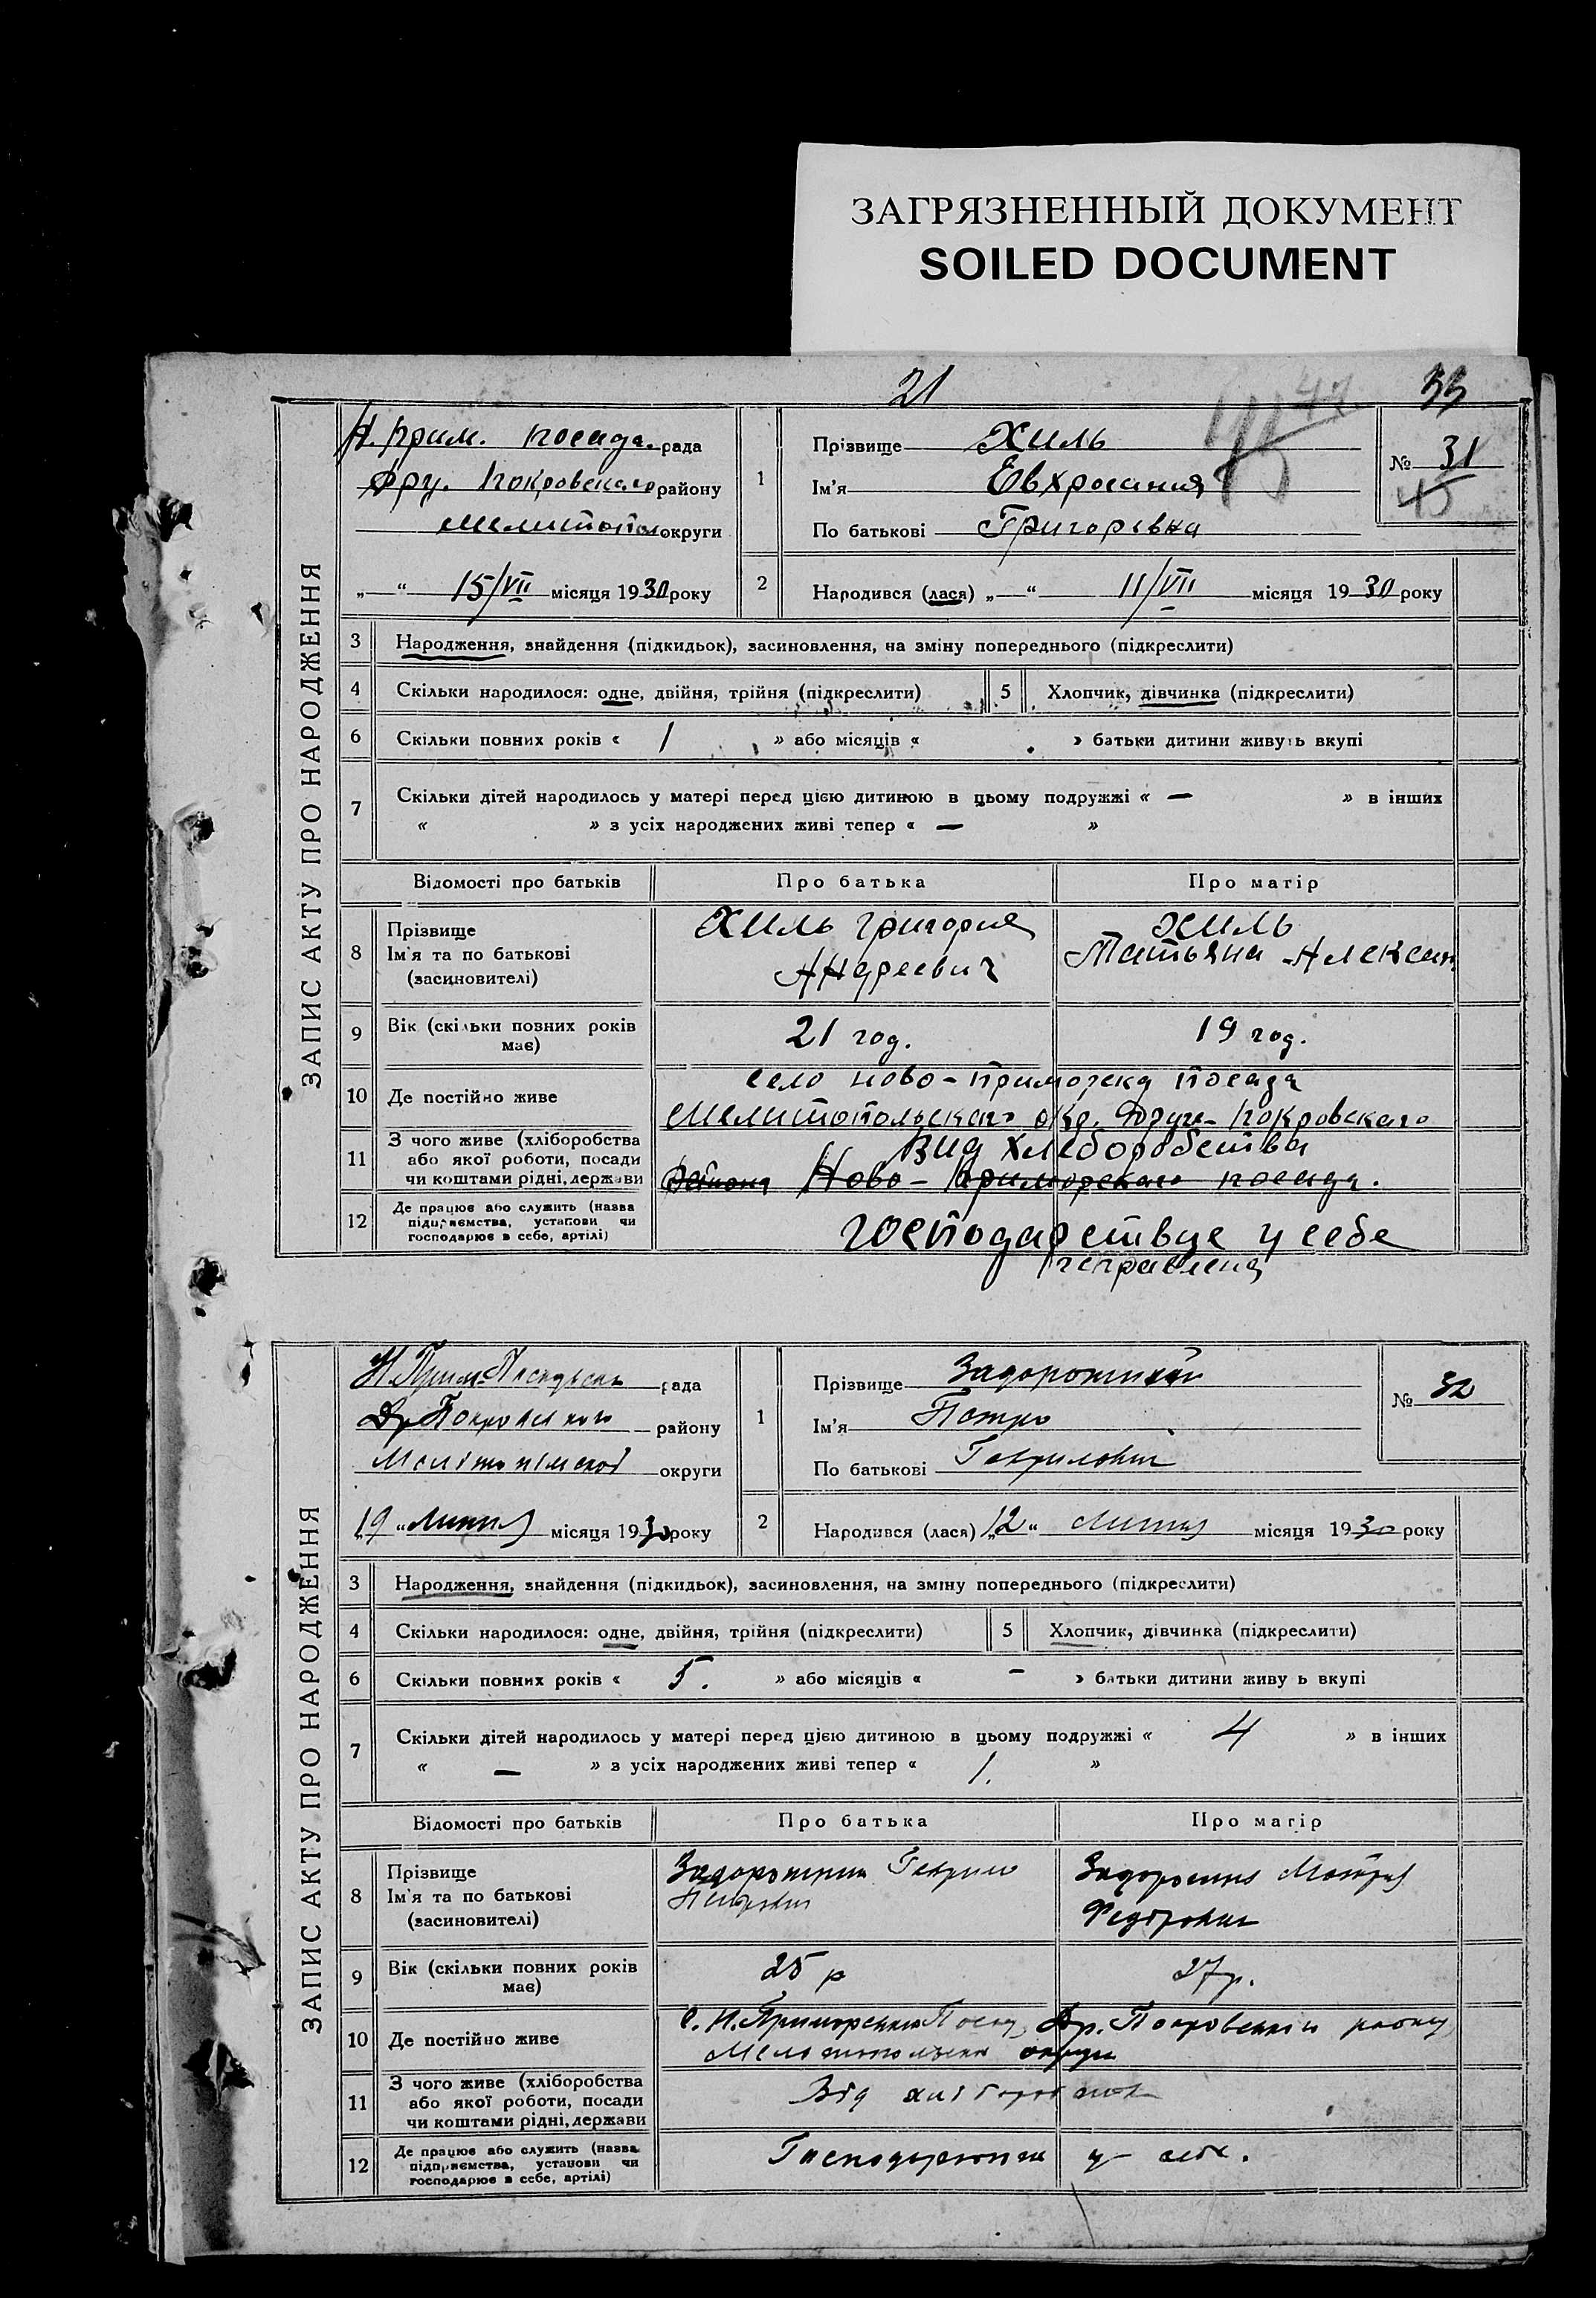 ЗАГРЯЗНЕННЫЙ ДОКУМЕНТ
SOILED DOCUMENT
21
33
ЗАПИС АКТУ ПРО НАРОДЖЕННЯ
Н. Прим. посада. рада
Дру. Покровского району
Мелитопол округи
„ “ 15/VII місяця 1930 року
1 Прізвище Хиль
Ім'я Евхросиния
По батькові Григорівна
№ 31
45
2 Народився (лася) „ “ 11/VII місяця 1930 року
3 Народження, знайдення (підкидьок), засиновлення, на зміну попереднього (підкреслити)
4 Скільки народилося: одне, двійня, трійня (підкреслити) 5 Хлопчик, дівчинка (підкреслити)
6 Скільки повних років « 1 » або місяців « » батьки дитини живуть вкупі
7 Скільки дітей народилось у матері перед цією дитиною в цьому подружжі « — » в інших
« » з усіх народжених живі тепер « — »
Відомості про батьків Про батька Про матір
8 Прізвище
Ім'я та по батькові
(засиновителі)
Хиль Григория
Андреевич
Хиль
Татьяна Алексан.
9 Вік (скільки повних років
має)
21 год. 19 год.
10 Де постійно живе
село Ново-Приморску посада
Мелитопольского окр. Друго-Покровского
11 З чого живе (хліборобства
або якої роботи, посади
чи коштами рідні, держави
Вид хлеборобства
района Ново-Приморского посада.
12 Де працює або служить (назва
підприємства, установи чи
господарює в себе, артілі)
господарствує у себе
Исправлена
ЗАПИС АКТУ ПРО НАРОДЖЕННЯ
Н. Прим. рада
Др Покровського району
Мелітопільской округи
„19“ Липня місяця 1930 року
1 Прізвище Задорожний
Ім'я Петро
По батькові Гаврилович
№ 32
2 Народився (лася) „12“ Липня місяця 1930 року
3 Народження, знайдення (підкидьок), засиновлення, на зміну попереднього (підкреслити)
4 Скільки народилося: одне, двійня, трійня (підкреслити) 5 Хлопчик, дівчинка (підкреслити)
6 Скільки повних років « 5. » або місяців « - » батьки дитини живуть вкупі
7 Скільки дітей народилось у матері перед цією дитиною в цьому подружжі « 4 » в інших
« — » з усіх народжених живі тепер « 1. »
Відомості про батьків Про батька Про матір
8 Прізвище
Ім'я та по батькові
(засиновителі)
Задорожний Гаврило
Задорожня Мотря
Федоровна
9 Вік (скільки повних років
має)
25 р 27 р.
10 Де постійно живе
С. Н. Приморский Посад, Др. Покровский району
округи
11 З чого живе (хліборобства
або якої роботи, посади
чи коштами рідні, держави
Від хліборобства
12 Де працює або служить (назва
підприємства, установи чи
господарює в себе, артілі)
Господарюють у себе.